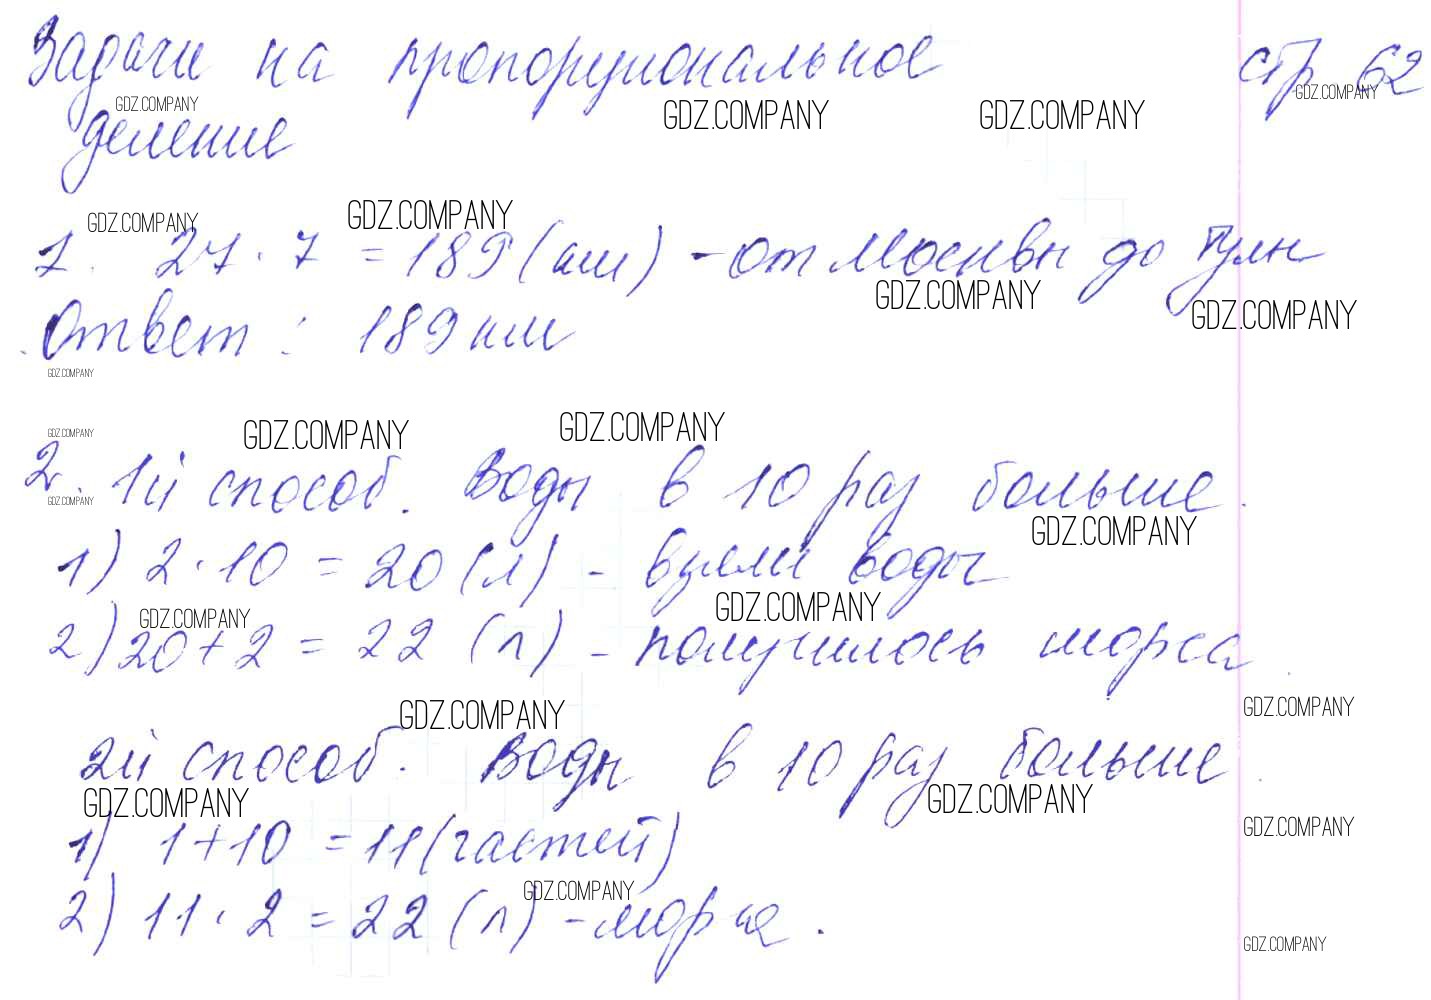 Задачи на пропорциональное стр 62
GDZ.COMPANY GDZ.COMPANY GDZ.COMPANY GDZ.COMPANY
деление
GDZ.COMPANY GDZ.COMPANY
1. 27 · 7 = 189 (км) - от Москвы до Тулы
GDZ.COMPANY GDZ.COMPANY
Ответ: 189 км
GDZ.COMPANY
GDZ.COMPANY GDZ.COMPANY GDZ.COMPANY
2. 1й способ. Воды в 10 раз больше.
GDZ.COMPANY GDZ.COMPANY
1) 2 · 10 = 20 (л) - взяли воды
GDZ.COMPANY GDZ.COMPANY
2) 20 + 2 = 22 (л) - получилось морса
GDZ.COMPANY GDZ.COMPANY
2й способ. Воды в 10 раз больше
GDZ.COMPANY GDZ.COMPANY GDZ.COMPANY
1) 1 + 10 = 11 (частей)
GDZ.COMPANY
2) 11 · 2 = 22 (л) - морса.
GDZ.COMPANY